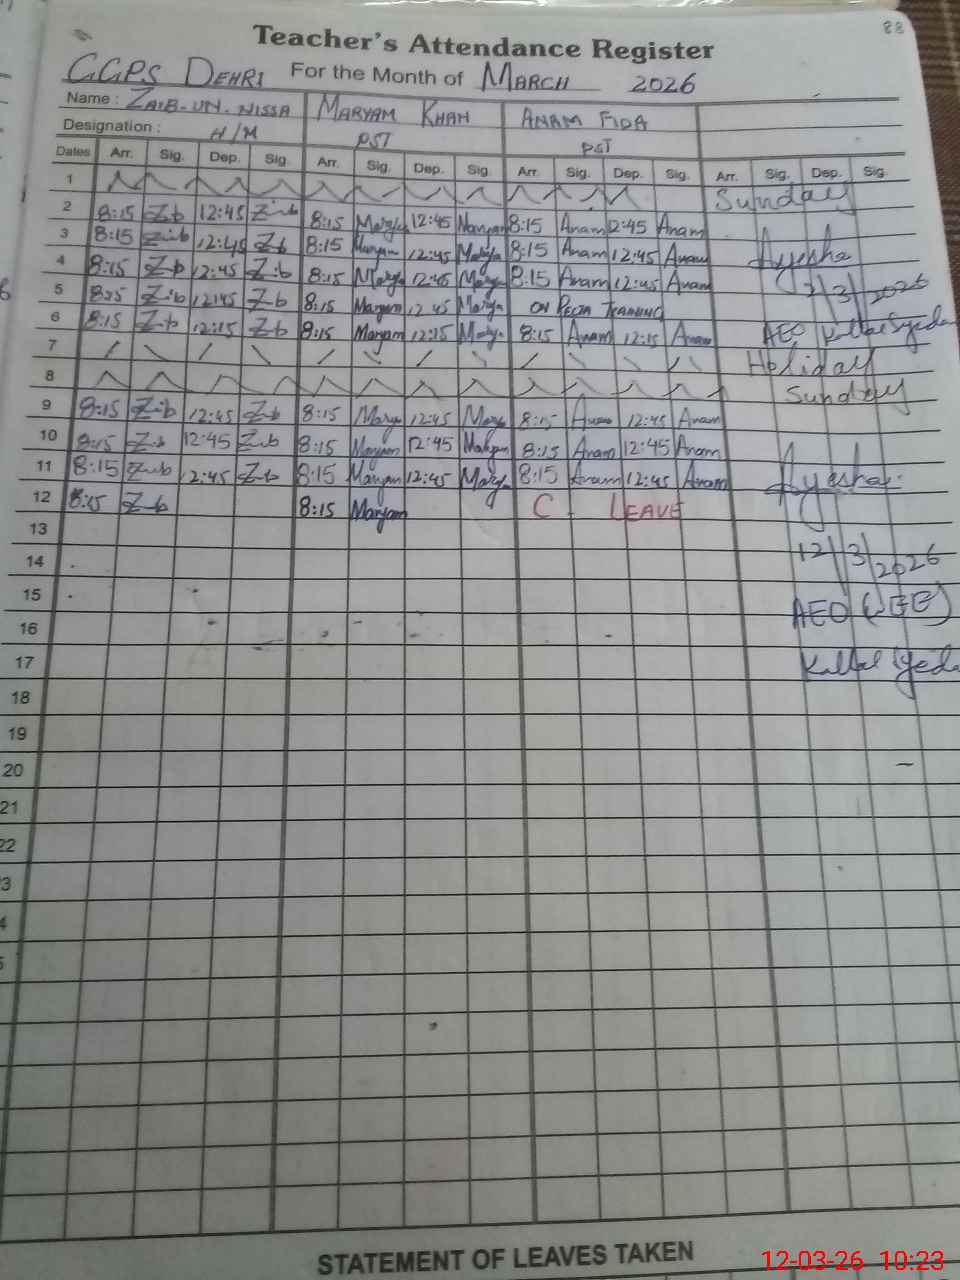 88
Teacher's Attendance Register
GGPS DEHRI For the Month of MARCH 2026
Name : ZAIB-UN-NISSA MARYAM KHAN ANAM FIDA
Designation : H/M PST PST
Dates Arr. Sig. Dep. Sig. Arr. Sig. Dep. Sig. Arr. Sig. Dep. Sig. Arr. Sig. Dep. Sig
1 Sunday
2 8:15 Z-b 12:45 Z-b 8:15 Maryam 12:45 Maryam 8:15 Anam 2:45 Anam
3 8:15 Z-b 12:45 Z-b 8:15 Maryam 12:45 Maryam 8:15 Anam 12:45 Anam Ayesha
4 8:15 Z-b 12:45 Z-b 8:15 Maryam 12:45 Maryam 8:15 Anam 12:45 Anam
5 8:15 Z-b 12:45 Z-b 8:15 Maryam 12:45 Maryam ON TRAINING /3/2026
6 8:15 Z-b 12:15 Z-b 8:15 Maryam 12:15 Maryam 8:15 Anam 12:15 Anam AEO Kallar Syeda
7 Holiday
8 Sunday
9 8:15 Z-b 12:45 Z-b 8:15 Mary 12:45 Mary 8:15 Anam 12:45 Anam
10 8:15 Z-b 12:45 Z-b 8:15 Maryam 12:45 Maryam 8:15 Anam 12:45 Anam
11 8:15 Z-b 12:45 Z-b 8:15 Maryam 12:45 Maryam 8:15 Anam 12:45 Anam Ayesha
12 8:15 Z-b 8:15 Maryam C. LEAVE
13
12/3/2026
14
15
AEO (WEE)
16
17 Kallar Syeda
18
19
20
21
22
3
4
5
STATEMENT OF LEAVES TAKEN
12-03-26 10:23